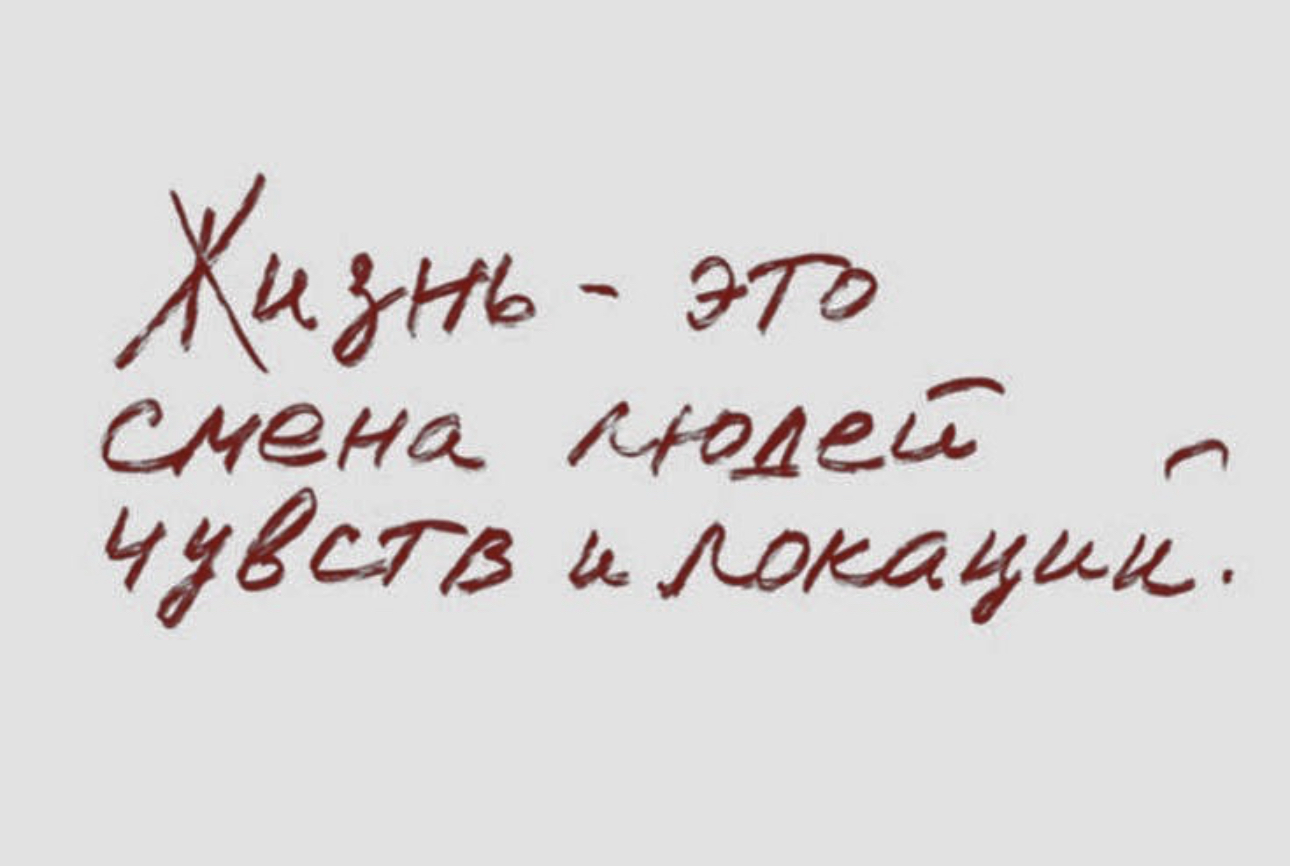 Жизнь - это
смена людей
чувств и локаций.